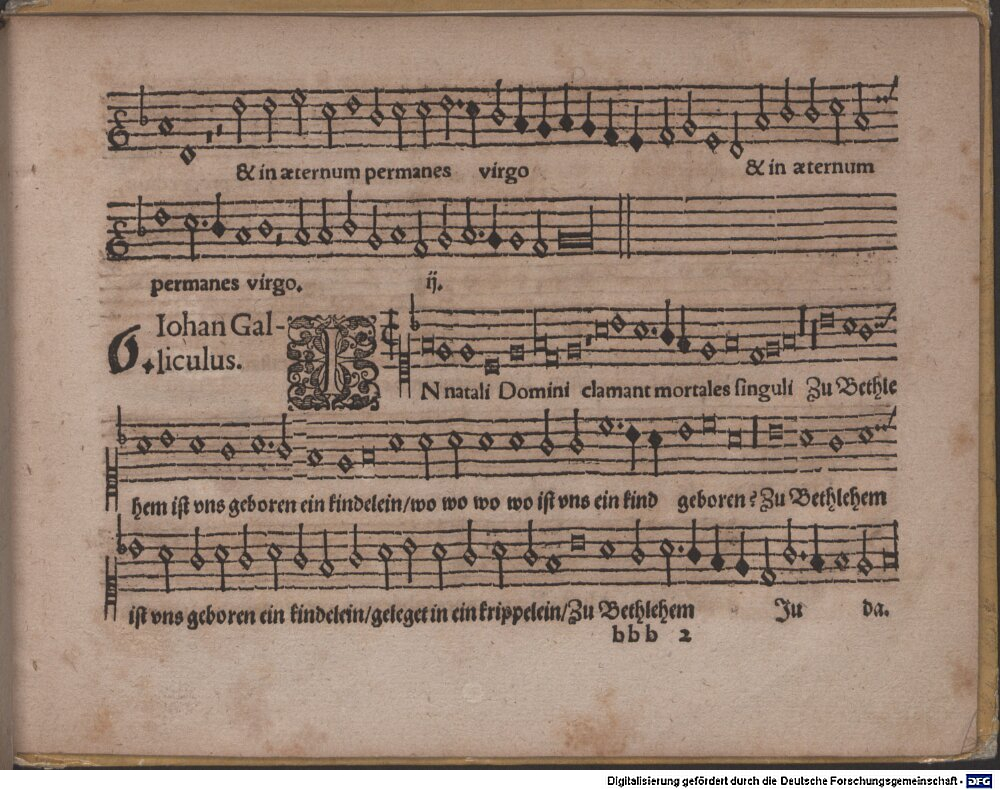 & in æternum permanes virgo & in æternum
permanes virgo. ij.
6. Iohan Gal-
liculus.
IN natali Domini clamant mortales ſinguli Zu Bethle
hem iſt vns geboren ein kindelein/wo wo wo wo iſt vns ein kind geboren? Zu Bethlehem
iſt vns geboren ein kindelein/geleget in ein krippelein/Zu Bethlehem Ju da.
bbb 2
Digitalisierung gefördert durch die Deutsche Forschungsgemeinschaft - DFG